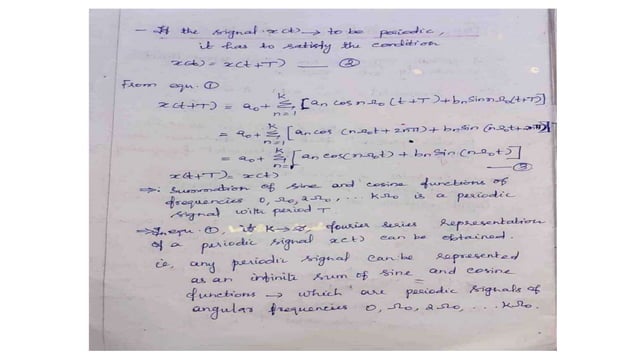 - If the signal x(t) → to be periodic,
it has to satisfy the condition
x(t) = x(t+T) —— ②
From equ. ①
x(t+T) = a₀ + Σ_{n=1}^{K} [an cos nΩ₀ (t+T) + bn sin nΩ₀ (t+T)]
= a₀ + Σ_{n=1}^{K} [an cos (nΩ₀t + 2nπ) + bn sin (nΩ₀t + 2nπ)]
= a₀ + Σ_{n=1}^{K} [an cos(nΩ₀t) + bn sin (nΩ₀t)]
x(t+T) = x(t) —— ③
⇒ Summation of sine and cosine functions of
frequencies 0, Ω₀, 2Ω₀, ... KΩ₀ is a periodic
signal with period T.
⇒ In equ. ①, if K → ∞ fourier series representation
of a periodic signal x(t) can be obtained.
ie, any periodic signal can be represented
as an infinite sum of sine and cosine
functions → which are periodic signals of
angular frequencies 0, Ω₀, 2Ω₀, ... KΩ₀.